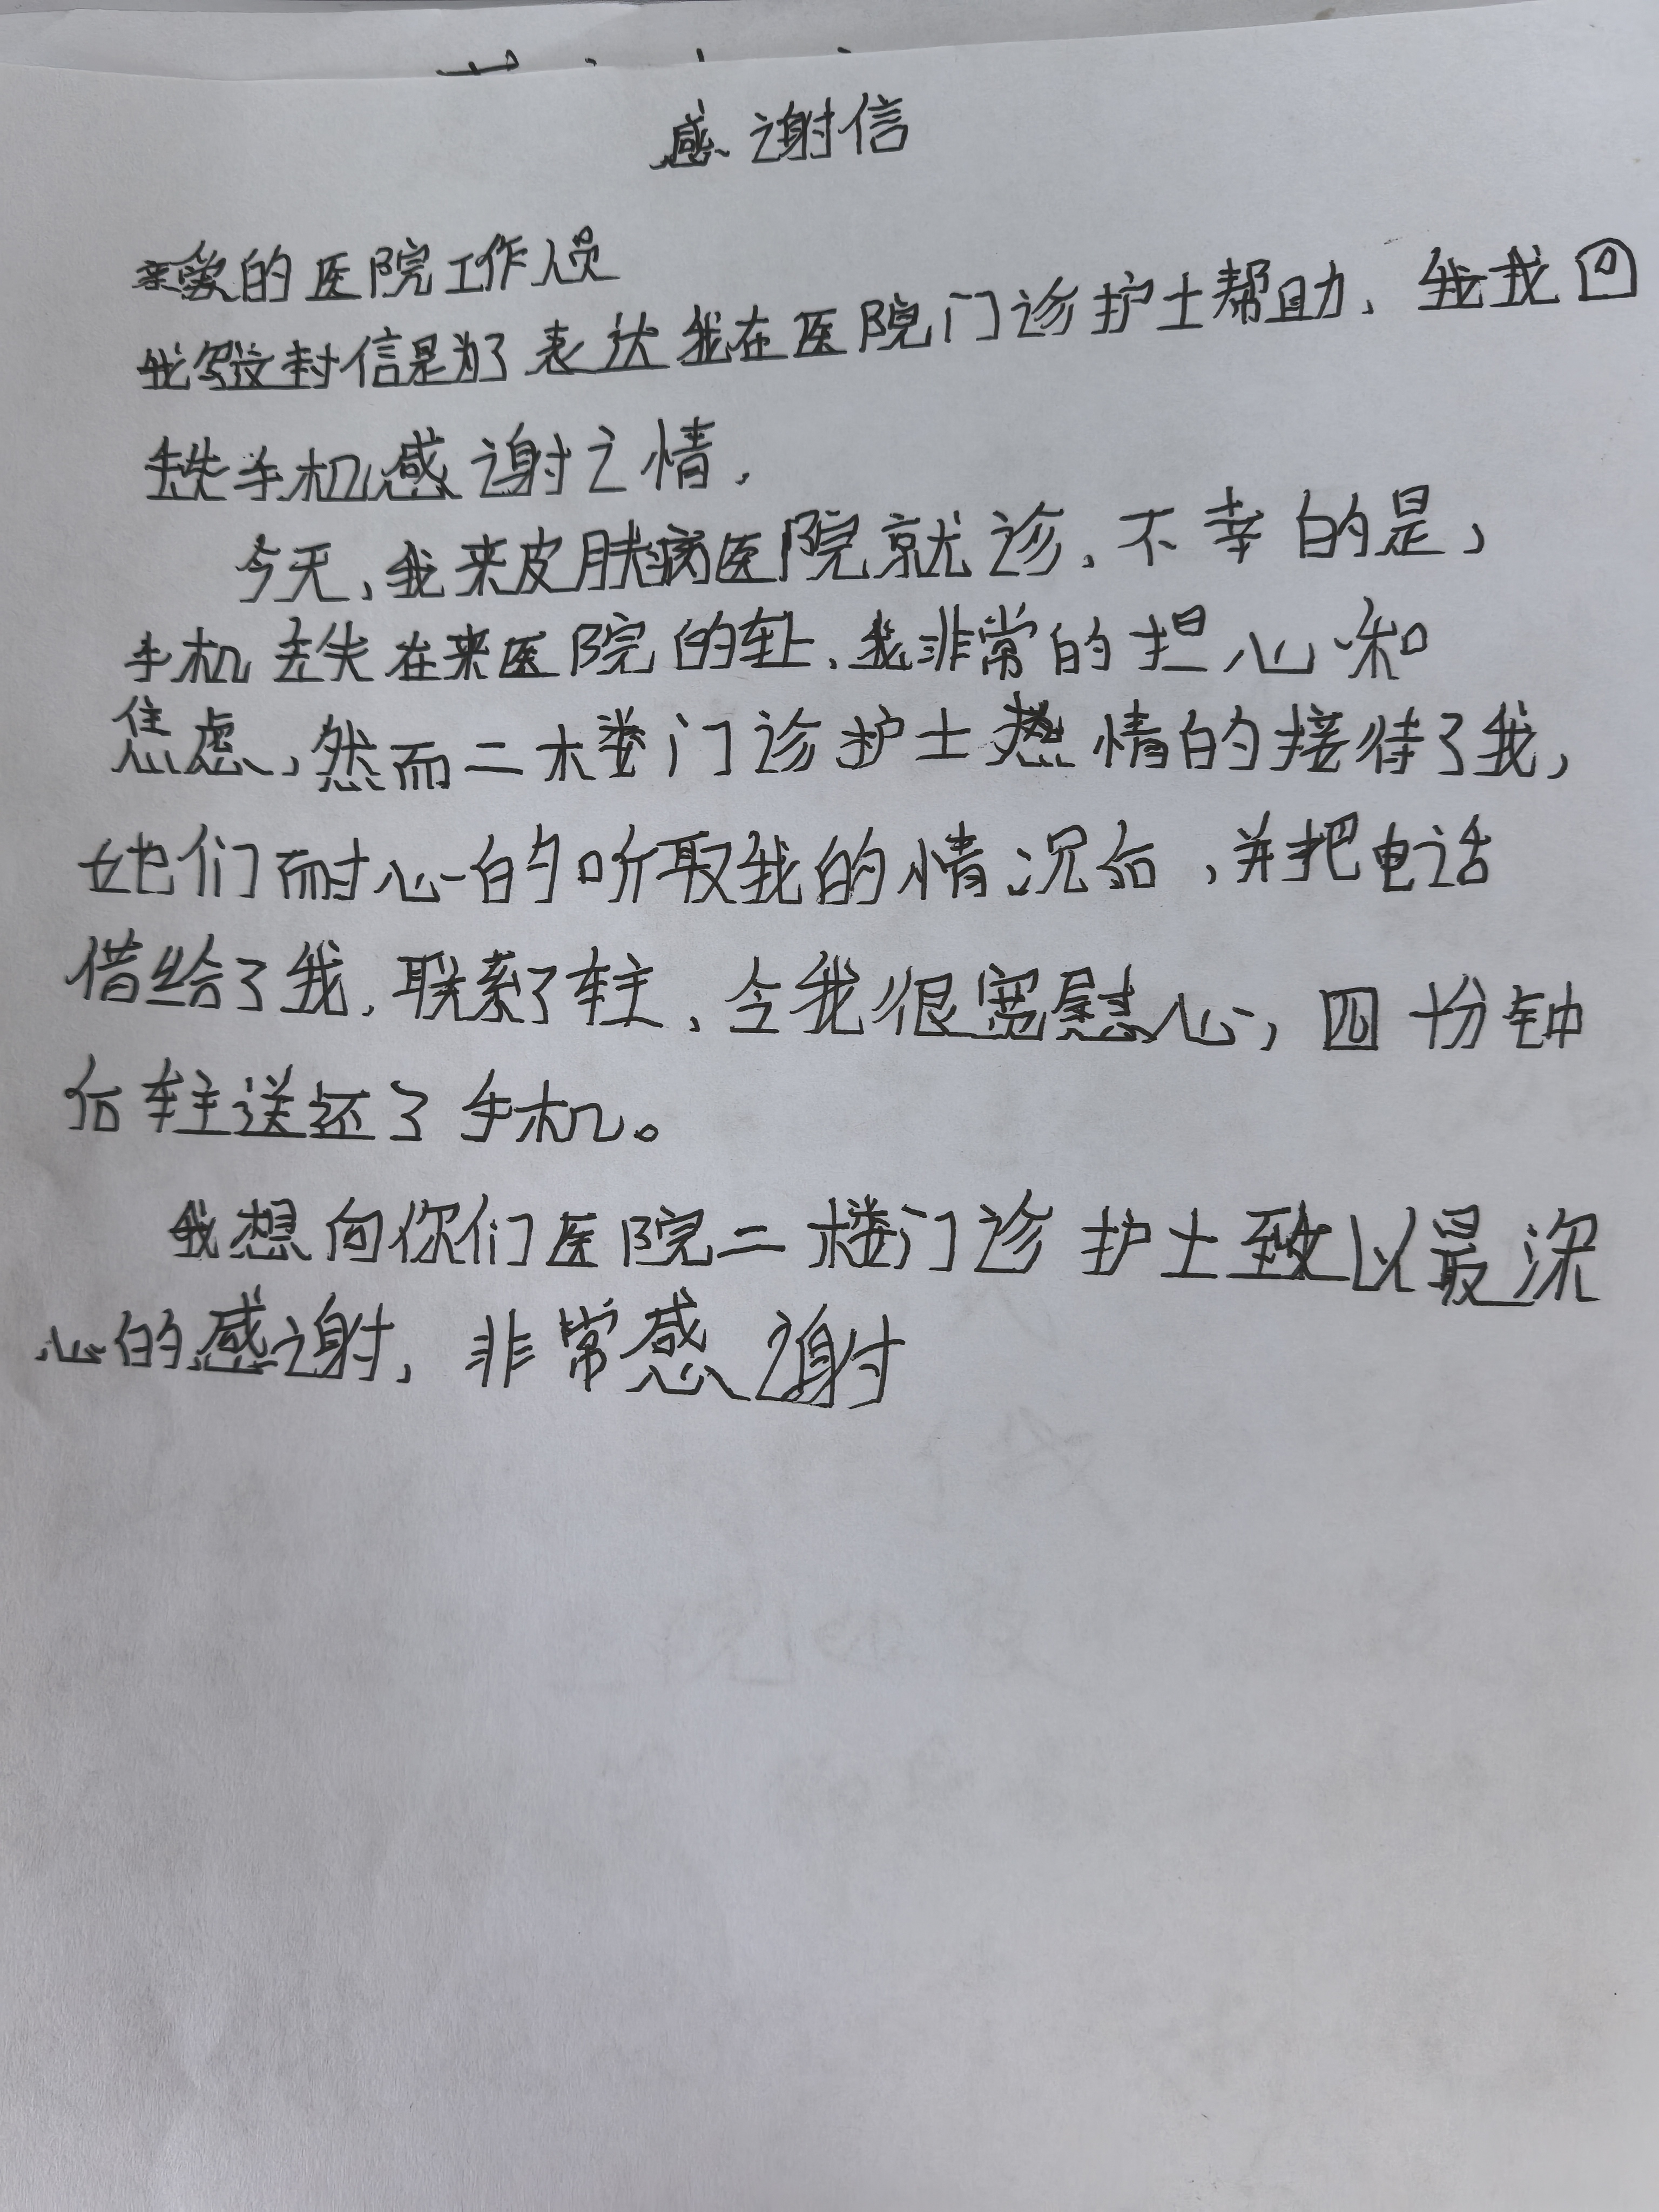 感谢信
亲爱的医院工作人员
我写这封信是为了表达我在医院门诊护士帮助、我找回
丢失手机感谢之情.
今天,我来皮肤病医院就诊,不幸的是,
手机丢失在来医院的车上,我非常的担心和
焦虑,然而二楼门诊护士热情的接待了我,
她们耐心的听取我的情况后,并把电话
借给了我,联系了车主,令我很宽慰心,四十份钟
后车主送还了手机。
我想向你们医院二楼门诊护士致以最深
心的感谢,非常感谢